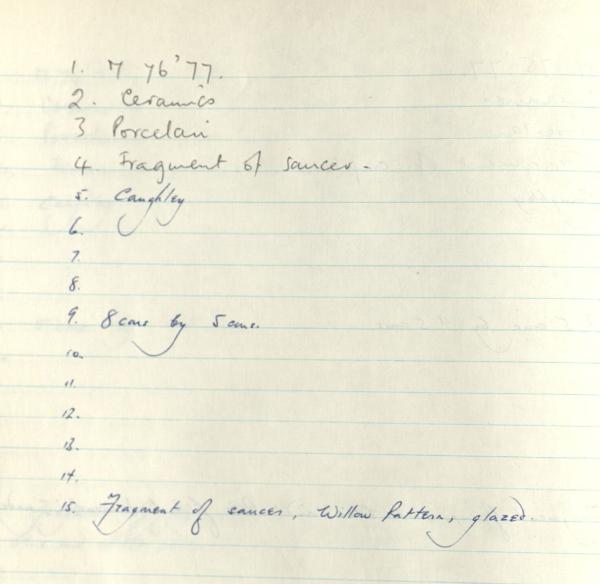 1. M 76'77.
2. Ceramics
3 Porcelain
4 Fragment of saucer.
5. Caughley
6.
7.
8.
9. 8 cms by 5 cms.
10.
11.
12.
13.
14.
15. Fragment of saucer, Willow Pattern, glazed.